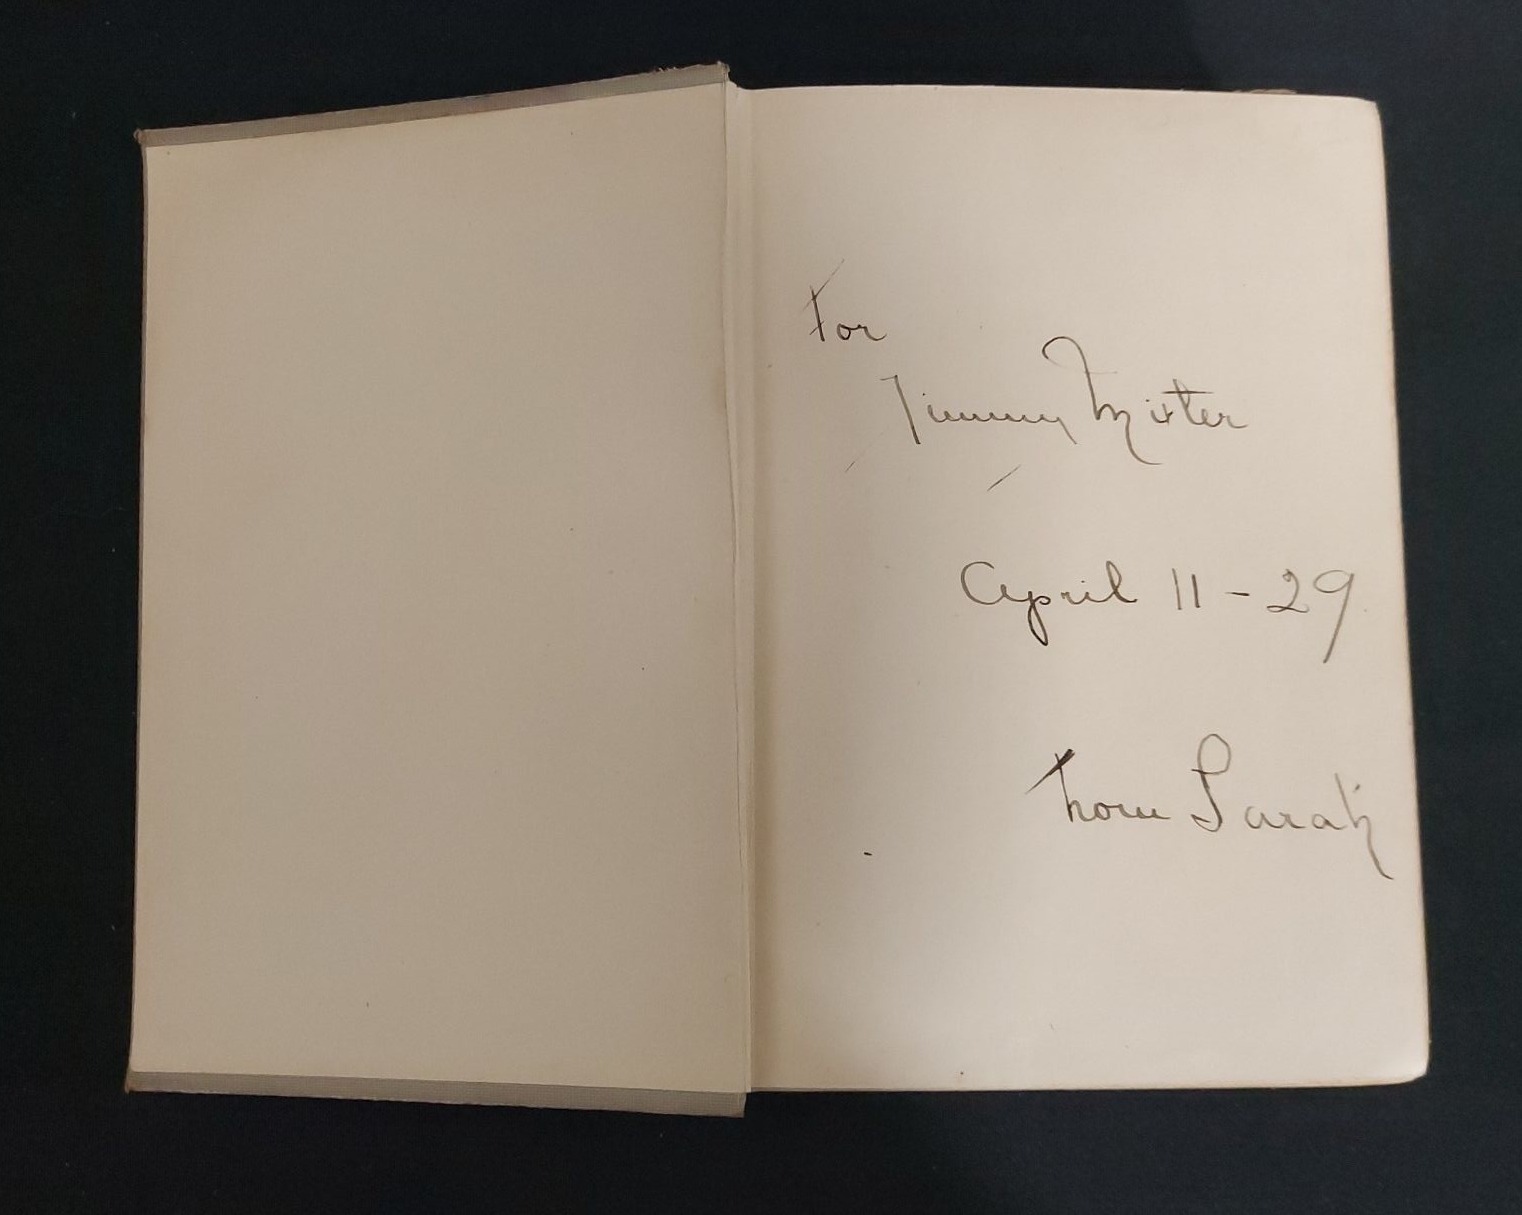 For
Jimmy Mixter
April 11 - 29
from Sarah